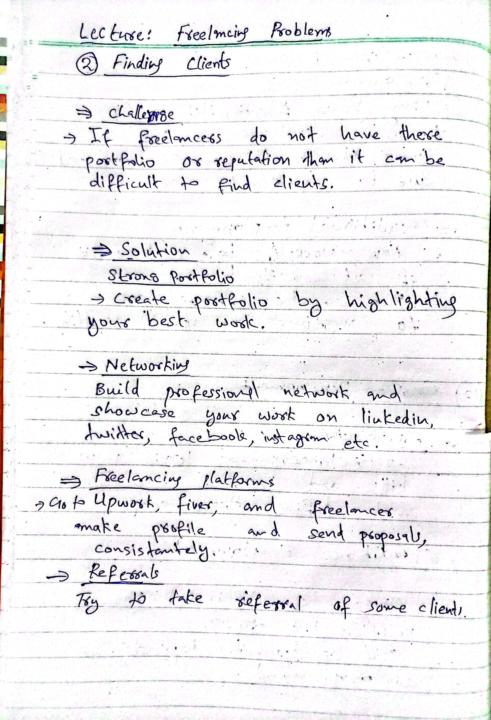 Lecture: Freelncing Problems
② Finding Clients
⇒ Challenge
→ If freelancers do not have there
portfolio or reputation than it can be
difficult to find clients.
⇒ Solution
Strong Portfolio
→ Create portfolio by highlighting
your best work.
→ Networking
Build professional network and
showcase your work on linkedin,
twitter, facebook, instagram etc.
⇒ Freelancing platforms
→ Go to Upwork, fiver, and freelancer
make profile and send proposals,
consistantely.
→ Referrals
Try to take referral of some clients.